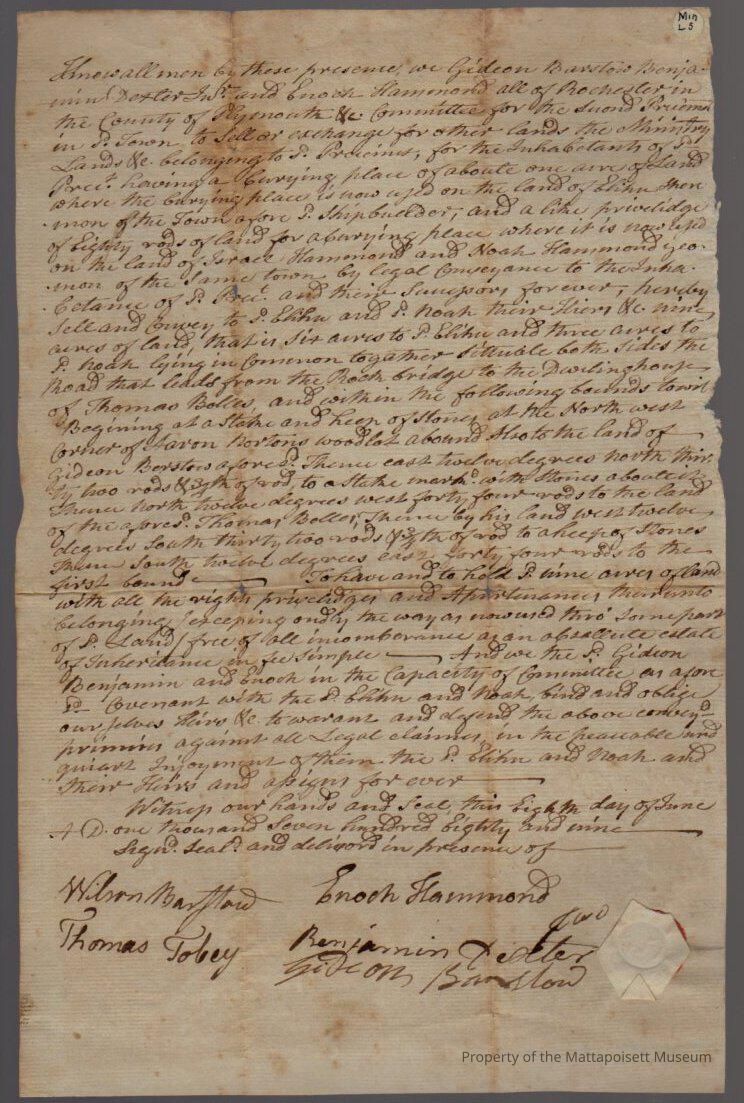 Min
L 5
Know all men by these presence, we Gideon Barstow Benja-
min Dexter Junr. and Enoch Hammond all of Rochester in
the County of Plymouth &c. Committee for the Second Precinct
in Sd. Town, to Sell or exchange for other lands the Ministry
Lands &c. belonging to Sd. Precinct, for the Inhabetants of Sd.
Prect. having a burying place of aboute one acre of Land
where the burying place is now used on the land of Elihu Sher
mon of the Town afore Sd. Shipbuilder, and a like privelidge
of Eighty rods of land for a burying place where it is now used
on the land of Israel Hammond and Noah Hammond yeo-
mon of the Same town by legal Conveyance to the Inha-
betance of Sd. Prect. and their Sucessors for ever; hereby
Sell and Convey to Sd. Elihu and Sd. Noah their Hiers &c. nine
acres of land, that is Six acres to Sd. Elihu and three acres to
Sd. Noah lying in Common togather Sittuble both Sides the
Road that leads from the Rock bridge to the Dwelinghouse
of Thomas Bolles, and within the following bounds towit
Begining at a Stake and heep of Stones at the North west
Corner of Aaron Hortons woodlot abound Also to the land of
Gideon Berstow afored. Thence east twelve degrees north thir
ty two rods & 3/4th of rod, to a Stake markd. with Stones aboute it
Thence North twelve degrees west forty four rods to the land
of the afored. Thomas Bolles, Thence by his land west twelve
degrees South thirty two rods & 3/4th of rod to a heep of Stones
Thence South twelve degrees east forty four rods to the
first bound To have and to hold Sd. nine acres of land
with all the rights privelidges and Apurtenances thereunto
belonging, excepting ondly the way as now used thro' Some part
of Sd. Land, free of all incomberance as an absolute estate
of Inheritance in fee Simple And we the Sd. Gideon
Benjamin and Enoch in the Capacity of Committee as afore
Sd. Covenant with the Sd. Elihu and Noah, bind and oblige
our selves Heirs &c. to warant and defend the above convey'd
primises against all Legal claimes, in the peaceable and
quiart Injoyment of them the Sd. Elihu and Noah and
their Heirs and assigns for ever
Witness our hands and Seal this Eighth day of June
A D. one thousand Seven hundred Eighty and nine
Signd. Seald. and deliverd in presence of
Wilson Barstow Enoch Hammond
Thomas Tobey Benjamin Dexter
Gideon Barstow
Property of the Mattapoisett Museum